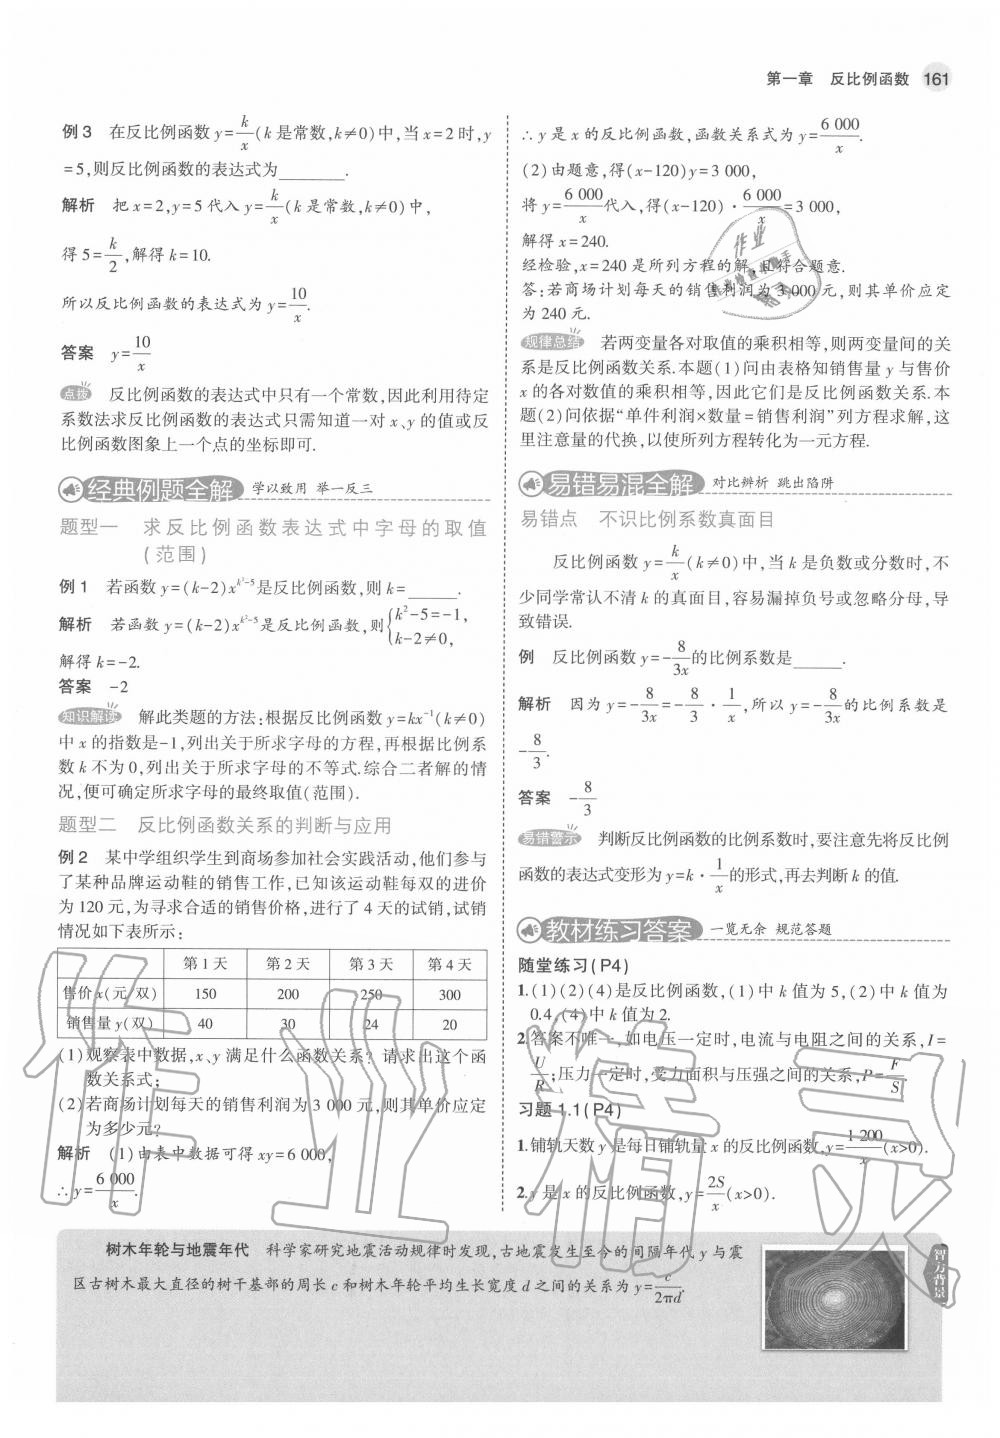 第一章 反比例函数 161
例 3 在反比例函数 y=k/x(k 是常数,k≠0)中,当 x=2 时,y
=5,则反比例函数的表达式为______.
解析 把 x=2,y=5 代入 y=k/x(k 是常数,k≠0)中,
得 5=k/2,解得 k=10.
所以反比例函数的表达式为 y=10/x.
答案 y=10/x
点拨 反比例函数的表达式中只有一个常数,因此利用待定
系数法求反比例函数的表达式只需知道一对 x、y 的值或反
比例函数图象上一个点的坐标即可.
经典例题全解 学以致用 举一反三
题型一 求反比例函数表达式中字母的取值
(范围)
例 1 若函数 y=(k-2)x^(k²-5)是反比例函数,则 k=______.
解析 若函数 y=(k-2)x^(k²-5)是反比例函数,则{k²-5=-1,
k-2≠0,
解得 k=-2.
答案 -2
知识解读 解此类题的方法:根据反比例函数 y=kx⁻¹(k≠0)
中 x 的指数是-1,列出关于所求字母的方程,再根据比例系
数 k 不为 0,列出关于所求字母的不等式.综合二者解的情
况,便可确定所求字母的最终取值(范围).
题型二 反比例函数关系的判断与应用
例 2 某中学组织学生到商场参加社会实践活动,他们参与
了某种品牌运动鞋的销售工作,已知该运动鞋每双的进价
为 120 元,为寻求合适的销售价格,进行了 4 天的试销,试销
情况如下表所示:
第 1 天 第 2 天 第 3 天 第 4 天
售价 x(元/双) 150 200 250 300
销售量 y(双) 40 30 24 20
(1)观察表中数据,x、y 满足什么函数关系?请求出这个函
数关系式;
(2)若商场计划每天的销售利润为 3 000 元,则其单价应定
为多少元?
解析 (1)由表中数据可得 xy=6 000,
∴y=6 000/x.
∴y 是 x 的反比例函数,函数关系式为 y=6 000/x.
(2)由题意,得(x-120)y=3 000,
将 y=6 000/x代入,得(x-120)·6 000/x=3 000,
解得 x=240.
经检验,x=240 是所列方程的解,且符合题意.
答:若商场计划每天的销售利润为 3 000 元,则其单价应定
为 240 元.
规律总结 若两变量各对取值的乘积相等,则两变量间的关
系是反比例函数关系.本题(1)问由表格知销售量 y 与售价
x 的各对数值的乘积相等,因此它们是反比例函数关系.本
题(2)问依据“单件利润×数量=销售利润”列方程求解,这
里注意量的代换,以使所列方程转化为一元方程.
易错易混全解 对比辨析 跳出陷阱
易错点 不识比例系数真面目
反比例函数 y=k/x(k≠0)中,当 k 是负数或分数时,不
少同学常认不清 k 的真面目,容易漏掉负号或忽略分母,导
致错误.
例 反比例函数 y=-8/3x的比例系数是______.
解析 因为 y=-8/3x=-8/3·1/x,所以 y=-8/3x的比例系数是
-8/3.
答案 -8/3
易错警示 判断反比例函数的比例系数时,要注意先将反比例
函数的表达式变形为 y=k·1/x的形式,再去判断 k 的值.
教材练习答案 一览无余 规范答题
随堂练习(P4)
1.(1)(2)(4)是反比例函数,(1)中 k 值为 5,(2)中 k 值为
0.4,(4)中 k 值为 2.
2.答案不唯一,如电压一定时,电流与电阻之间的关系,I=
U/R;压力一定时,受力面积与压强之间的关系,P=F/S.
习题 1.1(P4)
1.铺轨天数 y 是每日铺轨量 x 的反比例函数,y=1 200/x(x>0).
2.y 是 x 的反比例函数,y=2S/x(x>0).
树木年轮与地震年代 科学家研究地震活动规律时发现,古地震发生至今的间隔年代 y 与震
区古树木最大直径的树干基部的周长 c 和树木年轮平均生长宽度 d 之间的关系为 y=c/2πd.
作业精灵